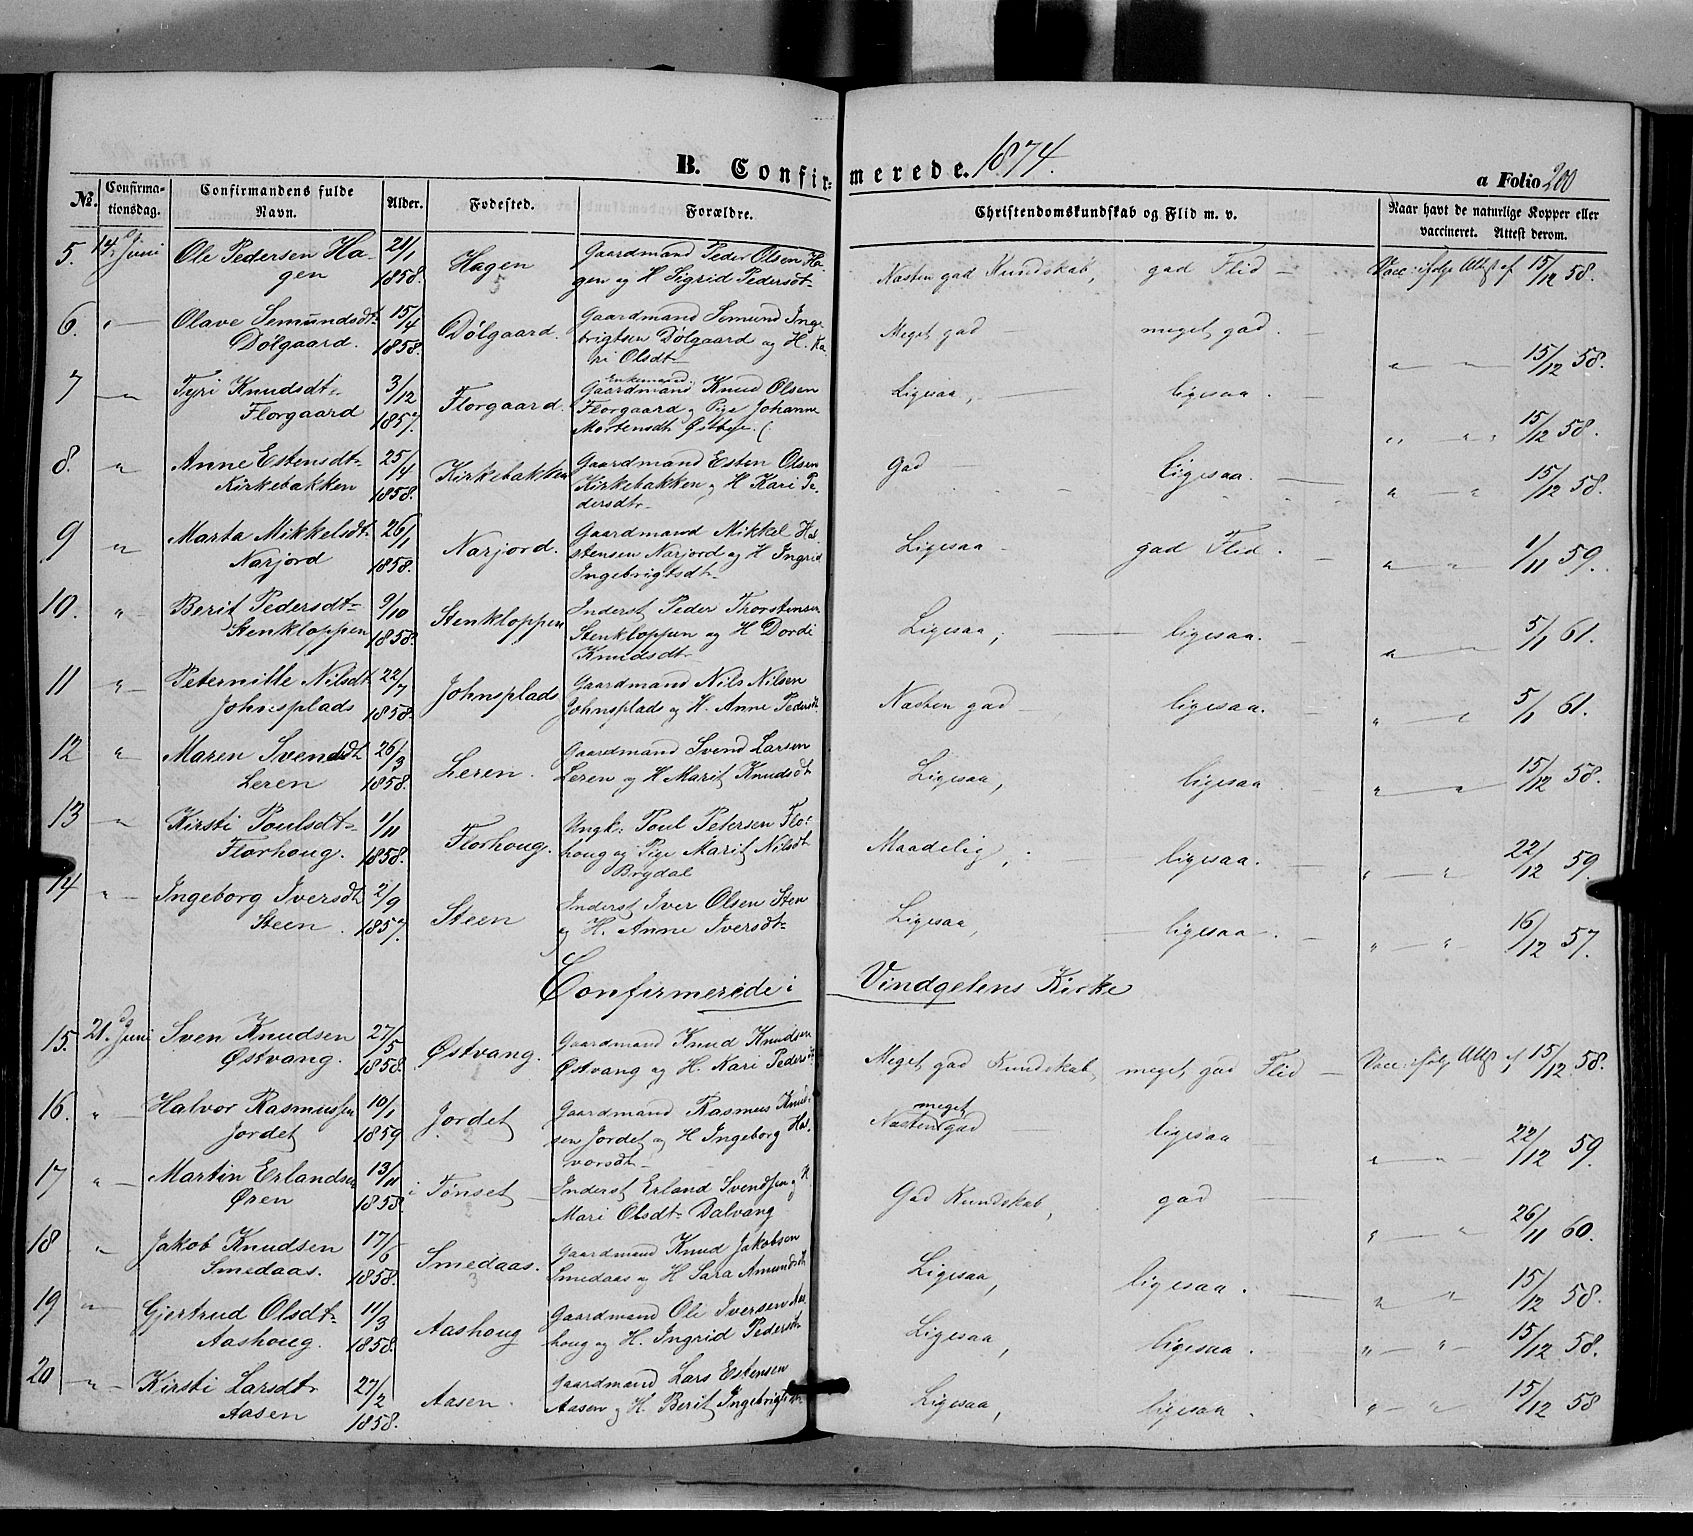 B. Confirmerede. 1874.
a Folio 200
No. Confirmationsdag. Confirmandens fulde Navn. Alder. Fødested. Forældre. Christendomskundskab og Flid m. v. Naar havt de naturlige Kopper eller vaccineret. Attest derom.
5. 14. Juni Ole Pedersen Ha- 21/1 Hagen Gaardmand Peder Olsen Ha- Næsten god Kundskab, god Flid — Vacc: ifølge Attest af 15/12 58.
gen 1858. gen og H Sigrid Pedersdt
6. " — Olave Semundsdt 15/4 Dølgaard. Gaardmand Semund Inge- Meget god — meget god. — " " 15/12 58.
Dølgaard. 1858. brigtsen Dølgaard og H. Ka-
ri Olsdt
7 " Tyri Knudsdt 3/12 Florgaard. Enkemand Gaardmand Knud Olsen Ligesaa, — ligesaa. — " " 15/12 58.
Florgaard 1857. Florgaard og Pige Johanne
Mortensdt Østbye.
8. " Anne Estensdt 25/4 Kirkebakken Gaardmand Esten Olsen God — ligesaa. — " " 15/12 58.
Kirkebakken 1858. Kirkebakken og H Kari Pe-
dersdtr
9 " Marta Mikkelsdt 26/1 Narjord. Gaardmand Mikkel Ha- Ligesaa — god Flid. — " " 1/11 59.
Narjord 1858. stensen Narjord og H Ingrid
Ingebrigtsdt
10. " Berit Pedersdt 9/10 Stenkloppen Inderst Peder Thorstensen Ligesaa, — ligesaa. — " " 5/1 61.
Stenkloppen 1858. Stenkloppen og H Dordi
Knudsdt
11 " Peternille Nilsdt 22/7 Johnsplads Gaardmand Nils Nilsen Næsten god ligesaa. — " " 5/1 61.
Johnsplads 1858. Johnsplads og H. Anne Pedersdt
12 " Maren Svendsdt 26/3 Leren. Gaardmand Svend Larsen Ligesaa, ligesaa " " 15/12 58.
Leren 1858. Leren og H Marit Knudsdt
13 " Kirsti Poulsdt 1/11 Florhoug. Ungk: Poul Petersen Flo- Maadelig, ligesaa. — " " 22/12 59.
Florhoug. 1858. houg og Pige Marit Nilsdt
Brydal
14 " Ingeborg Iversdt 2/9 Steen Inderst Iver Olsen Sten Ligesaa, — ligesaa. — " " 16/12 57.
Steen. 1857. og H. Anne Iversdt
Confirmerede i Vindgelens Kirke
15. 21. Juni Sven Knudsen 27/5 Østvang. Gaardmand Knud Knudsen Meget god Kundskab, meget god Flid — Vacc: ifølge Attst af 15/12 58.
Østvang. 1858. Østvang og H. Kari Pedersdt
16. " Halvor Rasmussen 10/1 Jordet Gaardmand Rasmus Knud- Næsten meget god — ligesaa — " " 22/12 59.
Jordet 1859 sen Jordet og H Ingeborg Hal-
vorsdt
17 " Martin Erlandsen 13/11 i Tønset Inderst Erland Svendsen og H God Kundskab, god — " " 26/11 60.
Øren 1858. Mari Olsdt Dalvang
18 " Jakob Knudsen 17/6 Smedaas. Gaardmand Knud Jakobsen Ligesaa, ligesaa. — " " 15/12 58.
Smedaas. 1858. Smedaas og H Sara Amundsdt
19 " Gjertrud Olsdt 11/3 Aashoug Gaardmand Ole Iversen Aas- Ligesaa, ligesaa. " " 15/12 58.
Aashoug. 1858. houg og H. Ingrid Pedersdt
20 " Kirsti Larsdt 27/2 Aasen. Gaardmand Lars Estensen Ligesaa, ligesaa. " " 15/12 58
Aasen 1858. Aasen og H. Berit Ingebrigtsdt